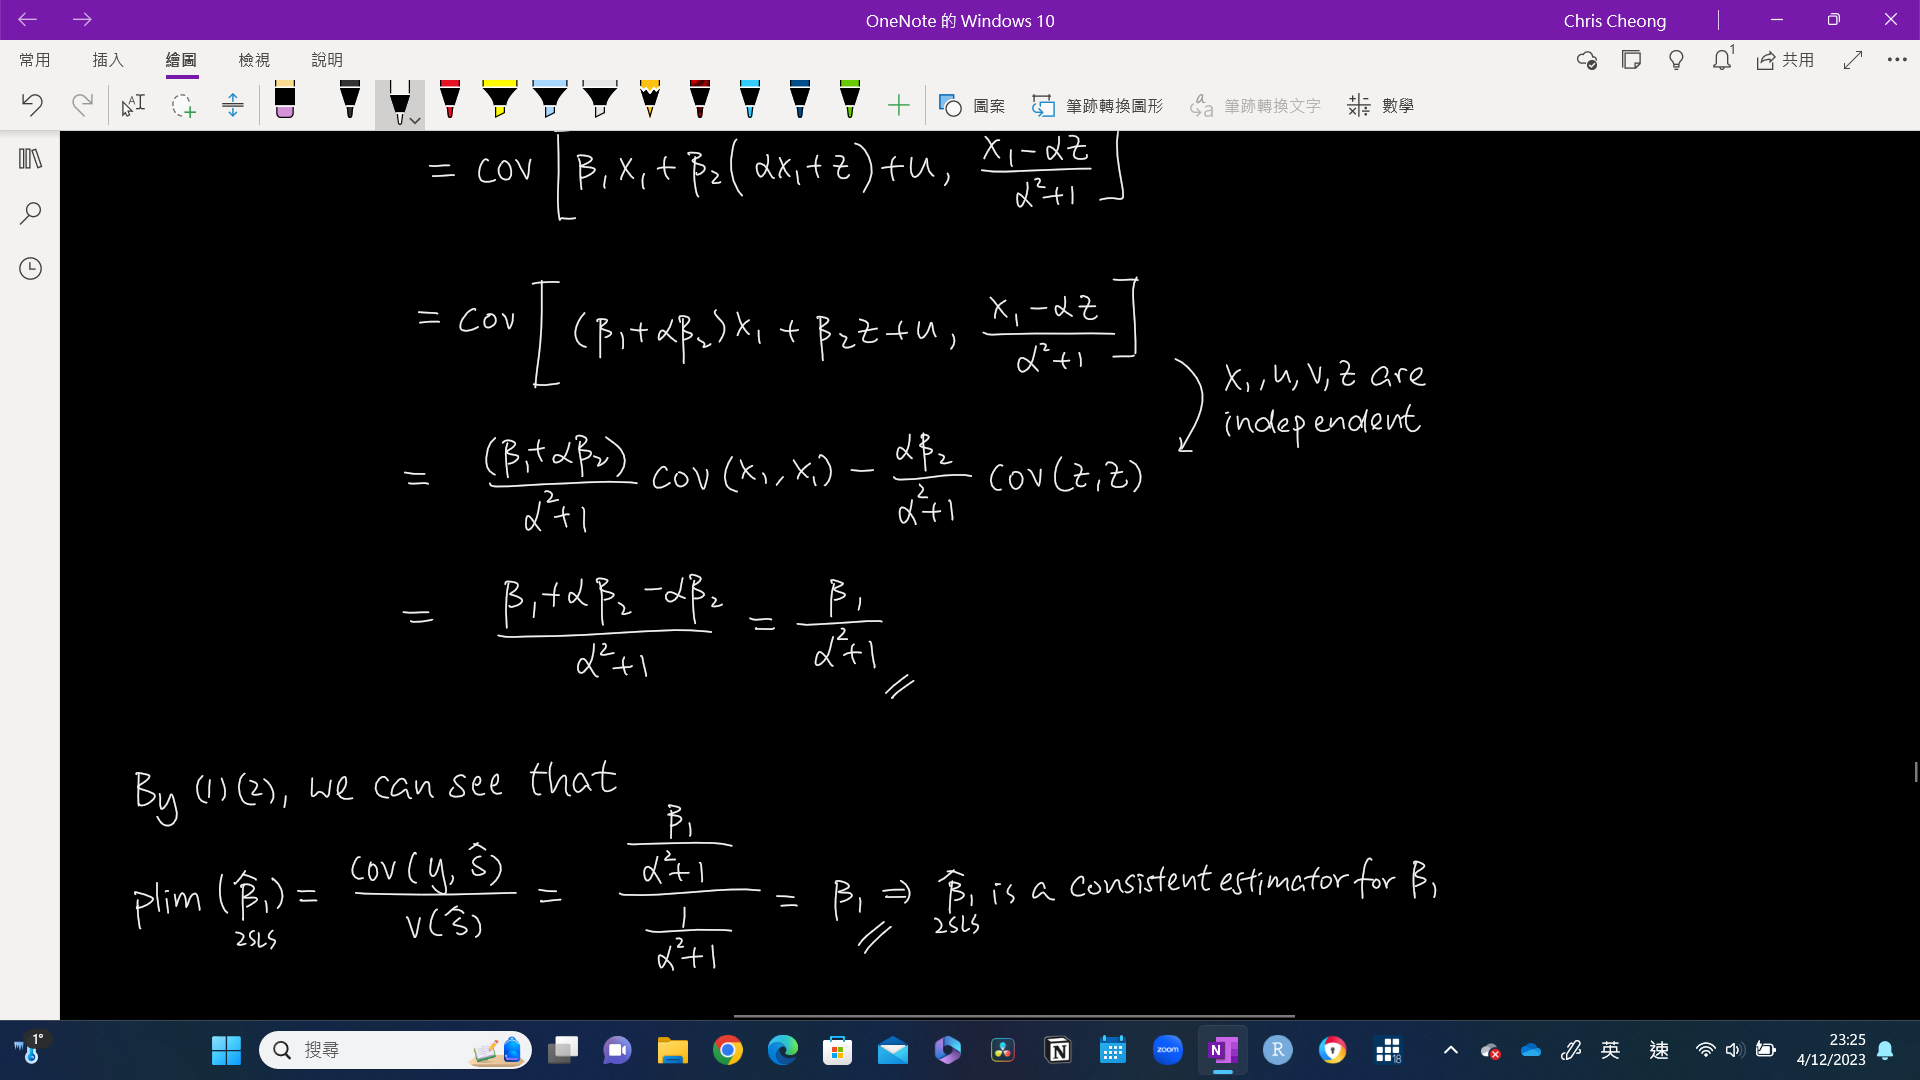 OneNote 的 Windows 10
Chris Cheong
常用 插入 繪圖 檢視 說明
1
共用
圖案 筆跡轉換圖形 筆跡轉換文字 數學
= COV [ β₁X₁ + β₂(αX₁+Z) + u, (X₁-αZ)/(α²+1) ]
= COV [ (β₁+αβ₂)X₁ + β₂Z + u, (X₁-αZ)/(α²+1) ]
X₁, u, v, Z are
independent
= (β₁+αβ₂)/(α²+1) COV(X₁, X₁) - αβ₂/(α²+1) COV(Z,Z)
= (β₁+αβ₂-αβ₂)/(α²+1) = β₁/(α²+1)
By (1)(2), we can see that
plim(β̂₁ 2SLS) = COV(y, ŝ)/V(ŝ) = (β₁/(α²+1))/(1/(α²+1)) = β₁ ⇒ β̂₁ 2SLS is a consistent estimator for β₁
1°
搜尋
zoom
N
R
18
英
速
23:25
4/12/2023